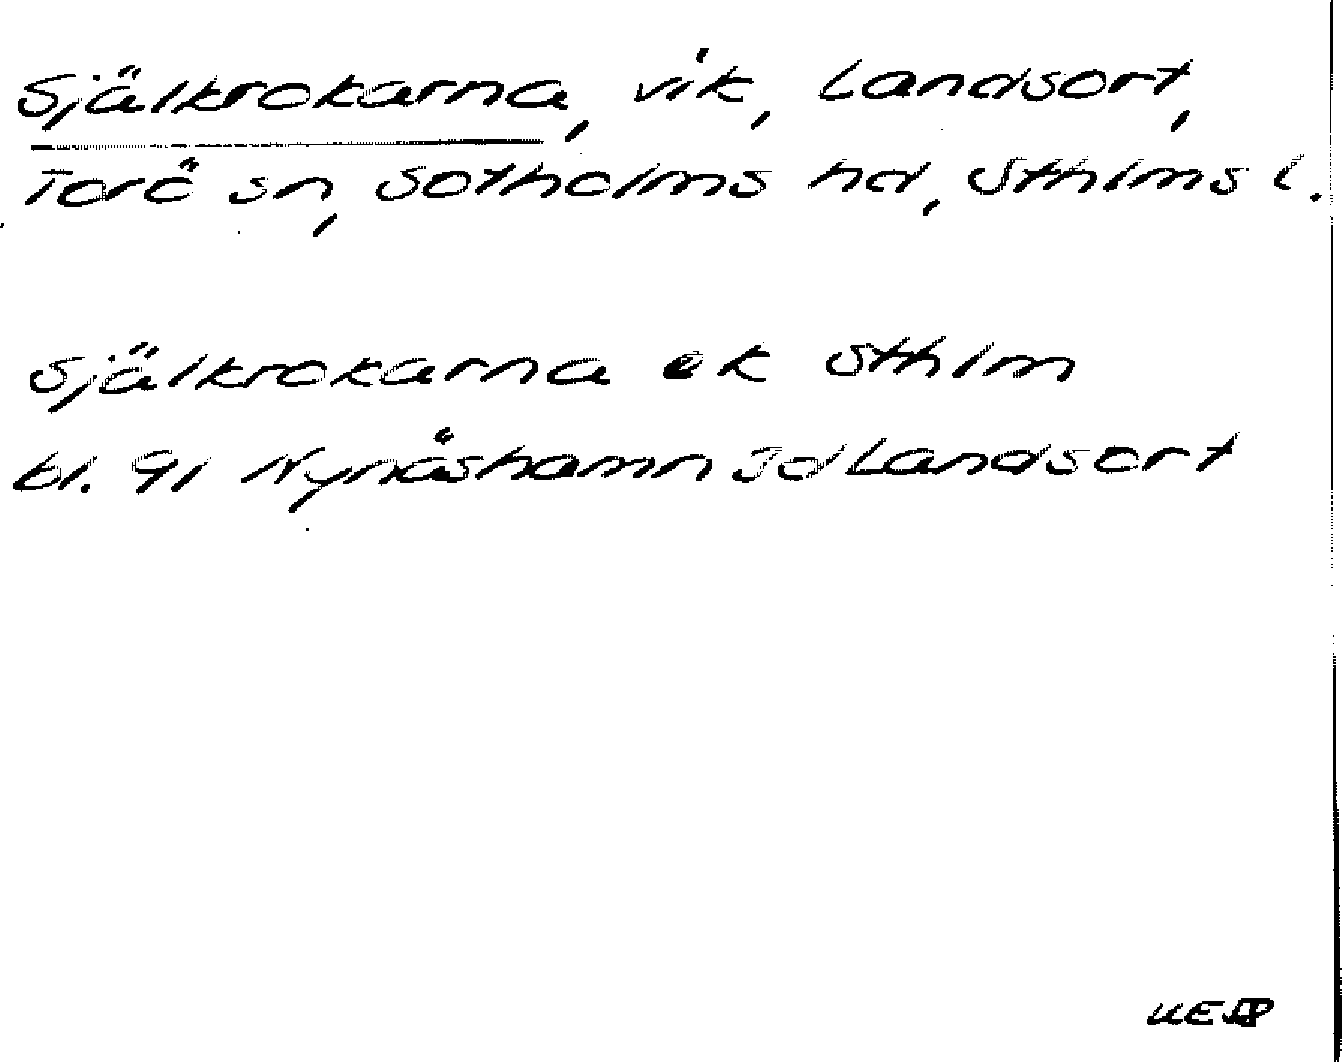 Själkrokarna, vik, Landsort,
Torö sn, Sotholms hd, Sthlms l.
Själkrokarna ek Sthlm
bl. 91 Nynäshamn Jd Landsort